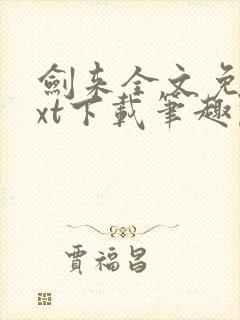 劍来全文免
xt下載筆趣
賈福昌